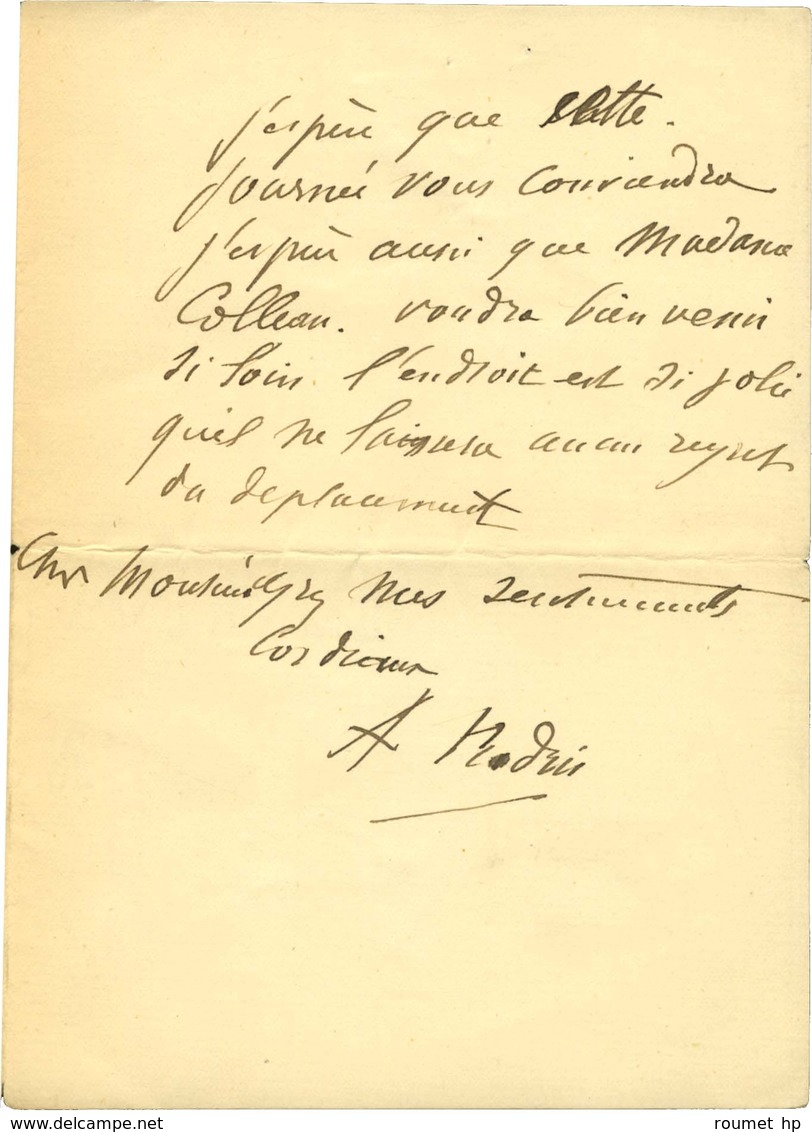 j'espère que cette.
journée vous conviendra
j'espère aussi que Madame
Colleau. voudra bien venir
si loin. l'endroit est si joli
quil ne laissera aucun regret
du deplacement
Cher Monsieur mes sentiments
Cordiaux
A Rodin
www.delcampe.net
roumet hp